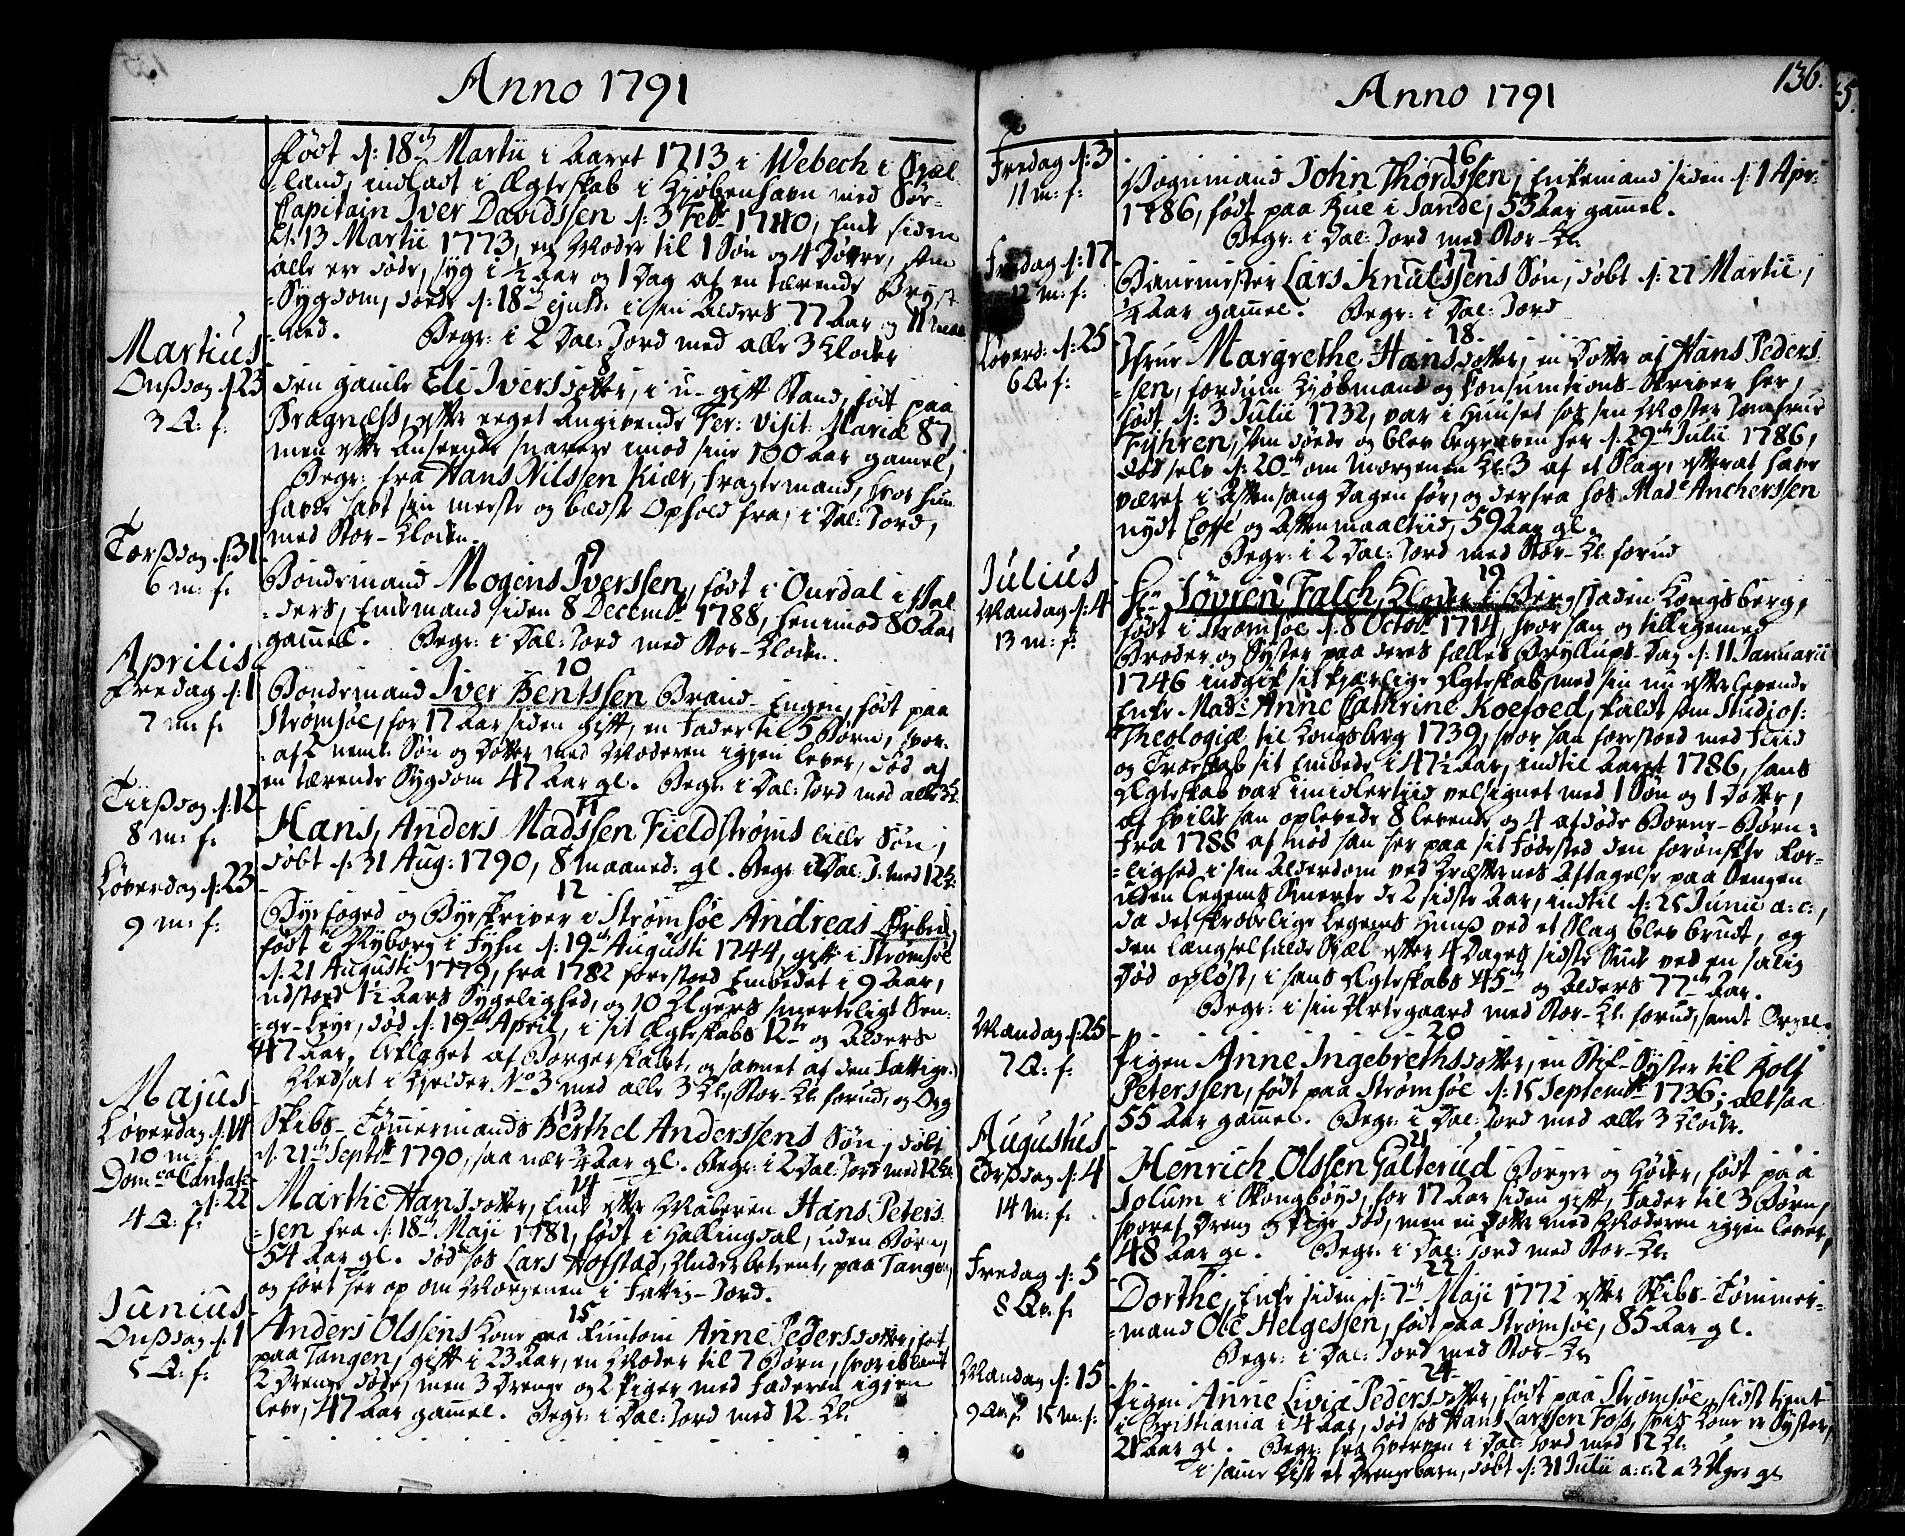 Anno 1791
Født d: 18de Martii i Aaret 1713 i Webech i Siæl
=land, indladt i Ægteskab i Kjøbenhavn med Sør=
Capitain Iver Davidssen d: 3 Febr 1740, Enke siden
d: 13 Martii 1773, en Moder til 1 Søn og 4 Døttre, som
alle ere døde, syg i ½ Aar og 1 Dag af en tærende Bryst
=Sygdom, døde d: 18de ejusd: i sin Alders 77 Aar og 11 maa
=ned. Begr: i 2 Dal: Jord med alle 3 Klocker
Martius
Onssdag d: 23
3 Q: f:
8
den gamle Eli Iversdotter, i u-gift Stand, født paa
Bragness, efter eeget Angivende Fer: Visit: Mariæ 87,
men efter Anseende snarere imod sine 100 Aar gamel,
Begr: fra Hans Nilssen Kiær, Fragtemand, hvor hun
havde havt sin meeste og bædste Ophold fra, i Dal: Jord,
med Stor-Klocken.
Torssdag d: 31
6 m: f:
9
Bondemand Mogens Iverssen, født i Ourdal i Val
=ders, Enkemand siden 8 Decembr 1788, henimod 80 Aar
gammel. Begr: i Dal: Jord med Stor-Klocken.
Aprilis
Fredag d: 1
7 m: f:
10
Bondemand Iver Bentssen Brand-Engen, født paa
Strømsøe, for 17 Aar siden gift, en Fader til 5 Børn, hvor=
=af 2 neml: Søn og Dotter med Moderen igjen lever, død af
en tærende Sygdom 47 Aar gl. Begr: i Dal: Jord med alle 3 Kl:
Tiissdag d: 12
8 m: f:
11
Hans, Anders Madssen Fieldstrøms lille Søn,
døbt d: 31 Aug: 1790, 8 maaned: gl. Begr: i Dal: J: med 12 Kl:
Løverdag d: 23
9 m: f:
12
Byefoged og Byeskriver i Strømsøe Andreas
født i Nyborg i Fyhn d: 19de Augusti 1744, gift i Strømsøe
d: 21 Augusti 1779, fra 1782 forestoed Embedet i 9 Aar,
udstoed 1½ Aars Sygelighed, og 10 Ugers smerteligt Sen=
=ge-Leye, død d: 19de April, i sit Ægteskabs 12te og Alders
47 Aar, beklaget af Borgerskabet, og savnet af den Fattige.
Nedsat i Kjelder No 3 med alle 3 Kl:, Stor-Kl: forud, og Org
Majus
Løverdag d: 14
10 m: f:
13
Skibs-Tømmermands Berthel Anderssens Søn, døbt
d: 21de Septbr 1790, saa nær ¾ Aar gl. Begr: i 2 Dal: Jord med 12 Kl:
Domca Cantate
d: 22
4 Q: f:
14
Marthe Hansdotter, Enke efter Maleren Hans Peters=
=sen fra d: 18de Maji 1781, født i Hallingdal, uden Børn,
54 Aar gl. død hos Lars Hofstad, Underbetient, paa Tangen,
og ført her op om Morgenen i Fattig-Jord.
Junius
Onssdag d: 1
5 Q: f:
15
Anders Olssens Kone paa Anne Pedersdotter, født
paa Tangen, gift i 23 Aar, en Moder til 7 Børn, hvoriblant
2 Drenge døde, men 3 Drenge og 2 Piger med Faderen igjen
leve, 47 Aar gammel. Begr: i Dal: Jord med 12 Kl:
Anno 1791
136.
Fredag d: 3
11 m: f:
16
Vognmand John Thordssen, Enkemand siden d: 1 Apr:
1786, født paa Rue i Sande, 53 Aar gammel.
Begr: i Dal: Jord med Stor-Kl:
Fredag d: 17
12 m: f:
17
Bauermester Lars Knutssens Søn, døbt d: 27 Martii,
¼ Aar gammel. Begr: i Dal: Jord
Løverd: d: 25
6 Q: f:
18
Jfrue Margrethe Hansdotter, en Dotter af Hans Peders
=sen, fordum Kjøbmand og Consumtions-Skriver her,
født d: 3 Julii 1732, var i Huuset hos sin Moster Jomfrue
Fyhren, som døde og blev begraven her d: 29de Julii 1786,
død selv d: 20de om Morgenen Kl: 3 af et Slag, efterat have
været i Aftensang Dagen før, og derfra hos Made Ancherssen
nydt Coffé og Aftenmaaltiid, 59 Aar gl.
Begr: i 2 Dal: Jord med Stor-Kl: forud
Julius
Mandag d: 4
13 m: f:
19
Hr: Søvren Falch, Klocker i Bergstaden Kongsberg,
født i Strømsøe d: 8 Octobr 1714, hvor han og tilligemed
Broder og Syster paa deres fælles Bryllups-Dag d: 11 Januarii
1746 indgik sit kjærlige Ægteskab, med sin nu efterlevende
Enke Made Anne Cathrine Koefoed, kaldt som Studios:
Theologiæ til Kongsberg 1739, hvor han forestoed med Fliid
og Troeskab sit Embede i 47½ Aar, indtil Aaret 1786, hans
Ægteskab var imidlertiid velsignet med 1 Søn og 1 Dotter,
af hvilke han oplevede 8 levende og 4 afdøde Børne-Børn:
Fra 1788 af nød han her paa sit Fødested den forønskte Roe=
=lighed i sin Alderdom ved Kræfternes Aftagelse paa Sengen
uden Legems Smerte de 2 sidste Aar, indtil d: 25 Junii a: c:,
da det skrøbelige Legems Huus ved et Slag blev brudt, og
den længselfulde Siæl efter 4 Dages sidste Suk ved en salig
Død opløst, i hans Ægteskabs 45de og Alders 77de Aar.
Begr: i sin Urtegaard med Stor-Kl: forud, samt Orgel.
Mandag d: 25
7 Q: f:
20
Pigen Anne Ingebrethsdotter, en Stif-Syster til Rolf
Peterssen, født paa Strømsøe d: 15 Septembr 1736; altsaa
55 Aar gammel. Begr: i Dal: Jord med alle 3 Klocker.
Augustus
Torssdag d: 4
14 m: f:
21
Henrich Olssen Galterud Borger og Høker, født paa
Solum i Skougbøyd, for 17 Aar siden gift, Fader til 3 Børn,
hvoraf Dreng og Pige død, men en Dotter med Moderen igjen lever,
48 Aar gl. Begr: i Dal: Jord med Stor-Kl:
Fredag d: 5
8 Qv: f:
22
Dorthe, Enke siden d: 7de Maji 1772 efter Skibs-Tømmer=
=mand Ole Helgessen, født paa Strømsøe, 85 Aar gl.
Begr: i Dal: Jord med Stor-Kl:
Mandag d: 15
9 Qv: f: 15 m: f:
24
Pigen Anne Livia Pedersdotter, født paa Strømsøe, sidst tient
i Christiania i 4 Aar, død hos Hans Larssen Foss, hvis Kone er Syster,
21 Aar gl. Begr: fra Hverven i Dal: Jord med 12 Kl:
i samme Kiste et Drengebarn, døbt d: 31 Julii a: c: 2 a 3 Uger gl